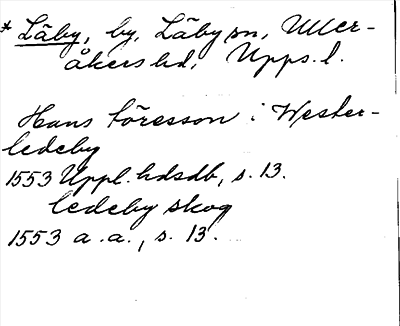 * Läby, by, Läby sn, Uller-
åkers hd, Upps. l.
Hans Töresson i Wester-
ledeby
1553 Uppl. hdsdb, s. 13.
ledeby skog
1553 a. a., s. 13.